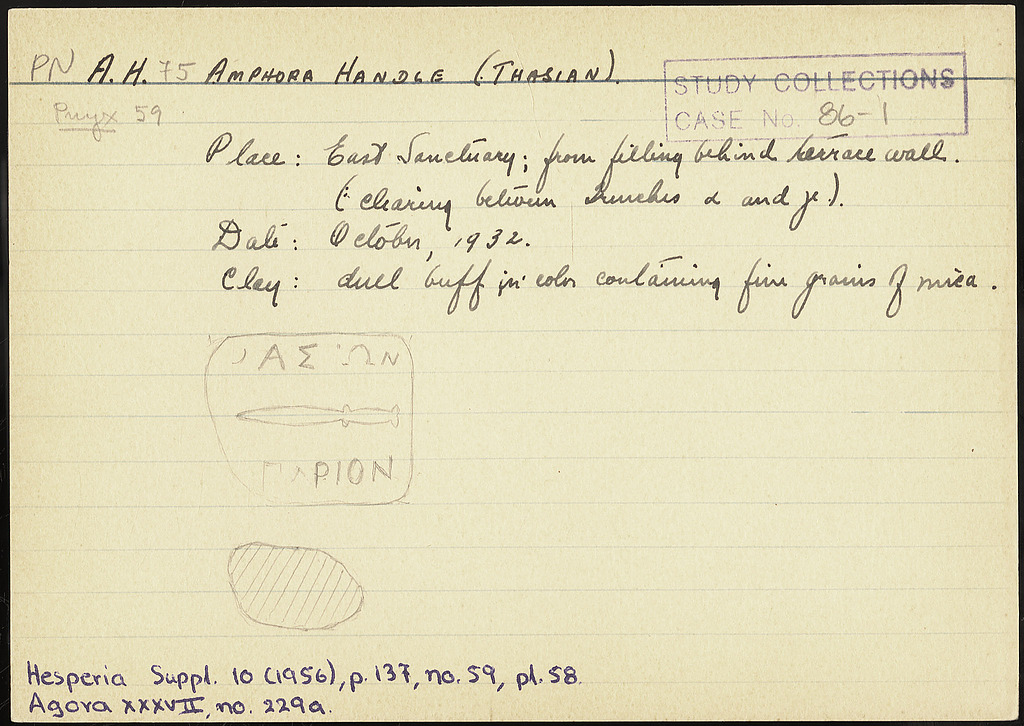 PN A.H. 75 AMPHORA HANDLE (THASIAN).
Pnyx 59
STUDY COLLECTIONS
CASE No. 86-1
Place: East Sanctuary; from filling behind terrace wall.
(: clearing between trenches α and γ.).
Date: October, 1932.
Clay: dull buff in color containing fine grains of mica.
ΑΣ ΩΝ
ΡΙΟΝ
Hesperia Suppl. 10 (1956), p. 137, no. 59, pl. 58.
Agora XXXVII, no. 229a.